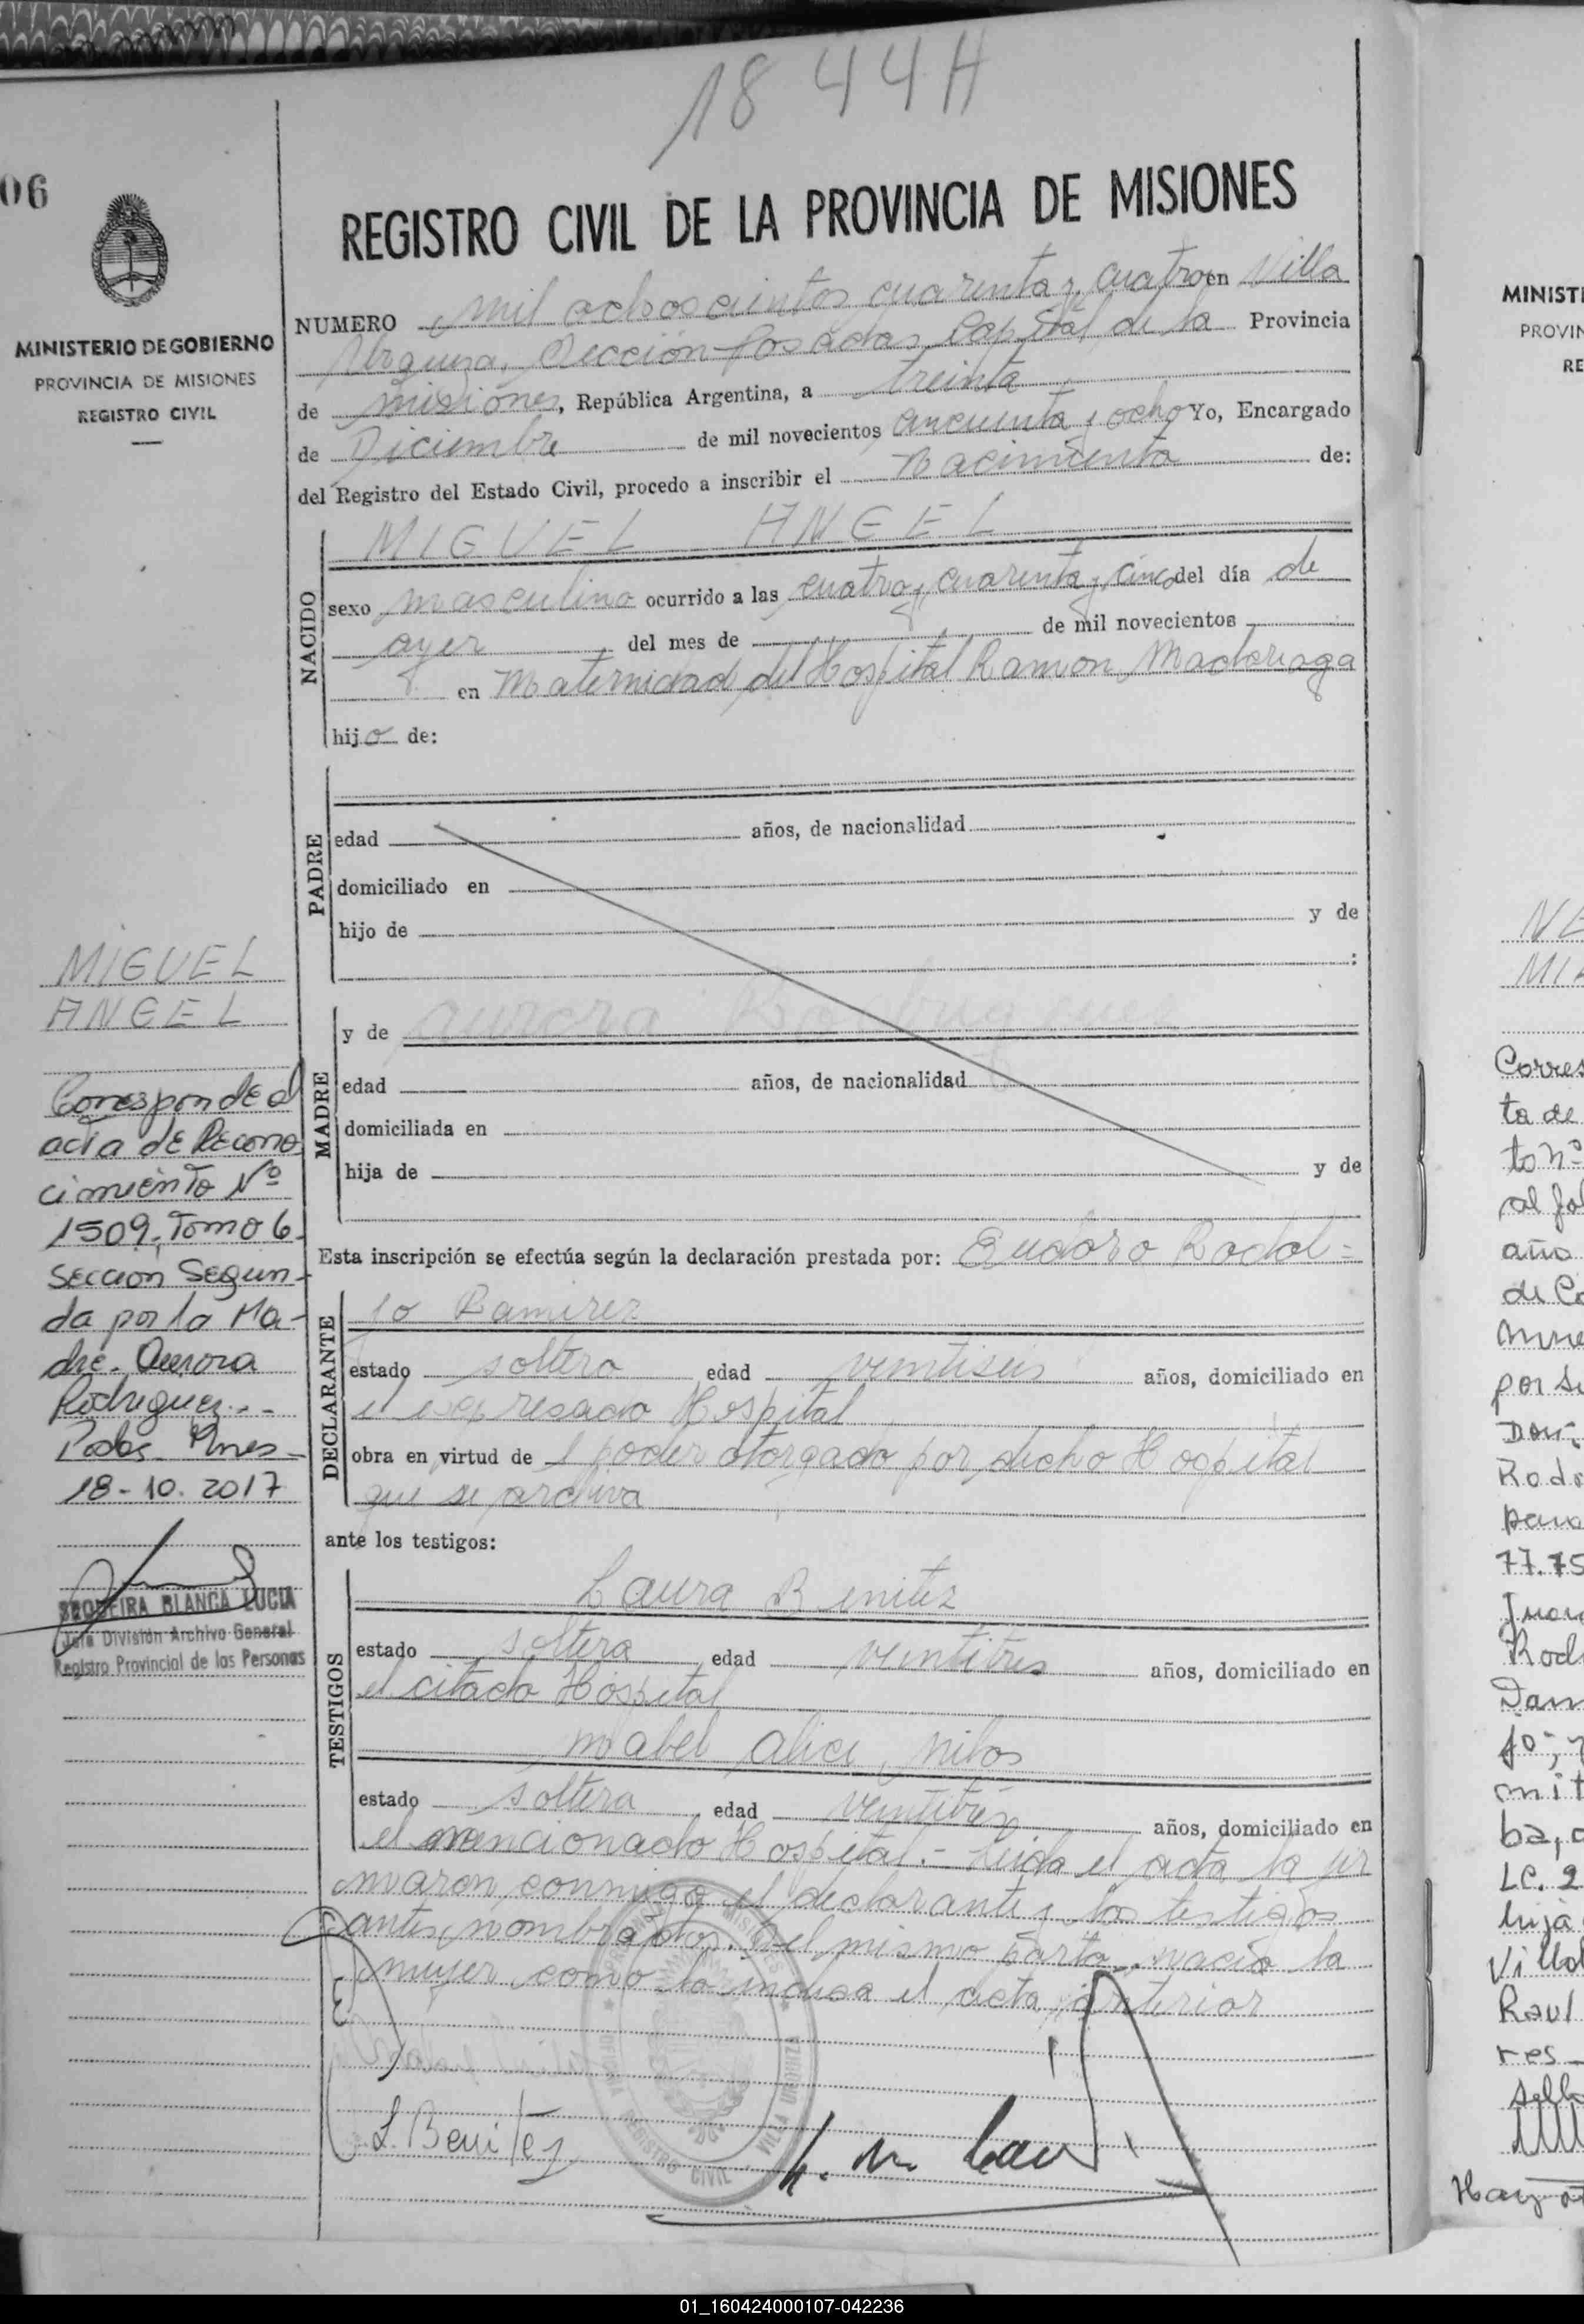 1844H
06
MINISTERIO DE GOBIERNO
PROVINCIA DE MISIONES
REGISTRO CIVIL
REGISTRO CIVIL DE LA PROVINCIA DE MISIONES
NUMERO mil ochoscientos cuarenta y cuatro en Villa
Urquiza, Sección Posadas Capital de la Provincia
de misiones, República Argentina, a treinta
de Diciembre de mil novecientos cincuenta y ocho Yo, Encargado
del Registro del Estado Civil, procedo a inscribir el Nacimiento de:
NACIDO
MIGUEL ANGEL
sexo masculino ocurrido a las cuatro y cuarenta y cinco del día de
ayer del mes de de mil novecientos
en Maternidad del Hospital Ramon Madariaga
hijo de:
PADRE
edad años, de nacionalidad
domiciliado en
hijo de y de
:
MADRE
y de Aurora Rodriguez
edad años, de nacionalidad
domiciliada en
hija de y de
Esta inscripción se efectúa según la declaración prestada por: Eudoro Rodol=
DECLARANTE
fo Ramirez
estado soltero edad veintiseis años, domiciliado en
el expresado Hospital
obra en virtud de l poder otorgado por dicho Hospital
que se archiva
ante los testigos:
TESTIGOS
Laura Benitez
estado soltera edad veintitres años, domiciliado en
el citado Hospital
Mabel Alice
estado soltera edad veintitres años, domiciliado en
el mencionado Hospital.- Leida el acta la fir
maron conmigo el declarante y los testigos
antes nombrados. Del mismo parto nacio la
mujer como lo indica el acta anterior
L. Benitez
REGISTRO CIVIL VILLA URQUIZA
MIGUEL
ANGEL
Corresponde al
acta de Recono
cimiento Nº
1509, Tomo 6
Seccion Segun-
da por la Ma-
dre. Aurora
Rodriguez.--
Podas. Mnes-
18-10.2017
SEQUEIRA BLANCA LUCIA
Jefe División Archivo General
Registro Provincial de las Personas
MINISTE
PROVIN
RE
NE
MIA
Corres
ta de
to nº
al fol
año
de Co
por su
Don
Rodo
para
77.75
Rodr
Dam
fo; y
mit
ba, c
LC. 2
hija
Villal
Raul
res-
Hay
01_160424000107-042236